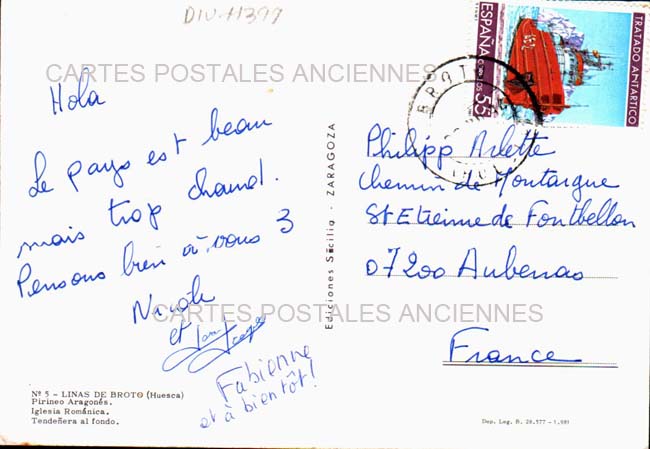 DIV-11399
CARTES POSTALES ANCIENNES
Hola
Le pays est beau
mais trop chaud.
Pensons bien à vous 3
Nicole
et
Fabienne
et à bientôt!
Nº 5 - LINAS DE BROTO (Huesca)
Pirineo Aragonés.
Iglesia Románica.
Tendeñera al fondo.
Ediciones Sicilia - ZARAGOZA
ESPAÑA
CORREOS
55
TRATADO ANTARTICO
BROTO
Philipp Arlette
Chemin de Montargue
St Etienne de Fontbellon
07200 Aubenas
France
CARTES POSTALES ANCIENNES
Dep. Leg. B. 28.577 - 1.981